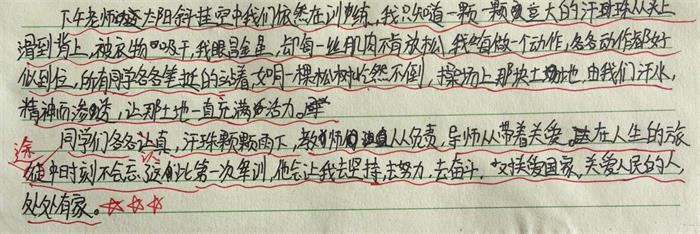 下午老师 太阳斜挂空中我们依然在训练,我只知道一颗一颗豆大的汗珠从头上
滑到背上,被衣物吸干,我眼冒金星,却每一丝肌肉不肯放松,我每做一个动作,各各动作都好
似到位,所有同学各各笔挺的站着,如一棵松树屹然不倒,操场上那块土地,由我们汗水,
精神而渗透,让那土地一直充满活力。
同学们各各认真,汗珠颗颗雨下,教师 认真从负责,导师从带着关爱。在人生的旅
途中时刻不会忘 这 第一次军训,他会让我去坚持,去努力,去奋斗。 关爱国家,关爱人民的人,
处处有家。☆☆☆
涂